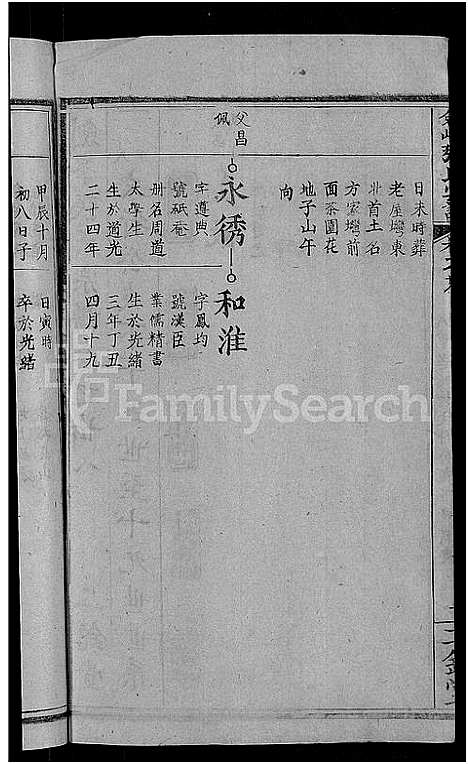 日未時葬
老屋塆東
北首土名
方家塆前
面茶園花
地子山午
向
父昌
佩
永綉
字遵典
號砥菴
册名周道
太學生
生於道光
二十四年
和淮
字鳳均
號漢臣
業儒精書
生於光緒
三年丁丑
四月十九
甲辰十月
初八日子
日寅時
卒於光緒
FamilySearch